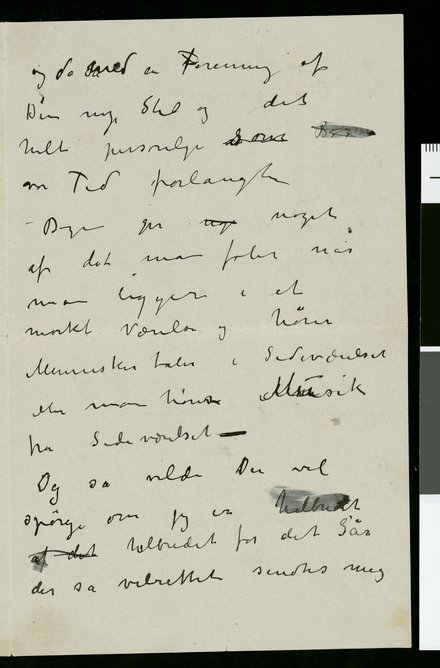 og da med en Forening af
Den nye Stil og det
helt personlige som
vor Tid forlangte
– Byen gir noget
af det man føler når
man ligger i et
mørkt Værelse og hører
Mennesker taler i Sideværelset
eller man hører Musik
fra Sideværelset –
Og så vilde De vel
spørge om jeg er helbredet
af det helbredet for det Sår
der så velrettet sendtes mig